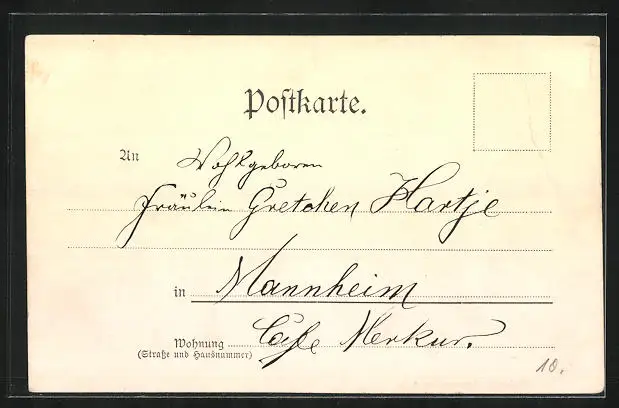 Postkarte.
An Wohlgeboren
Fräulein Gretchen Hartje
in Mannheim
Wohnung Cafe Merkur.
(Straße und Hausnummer)
10.